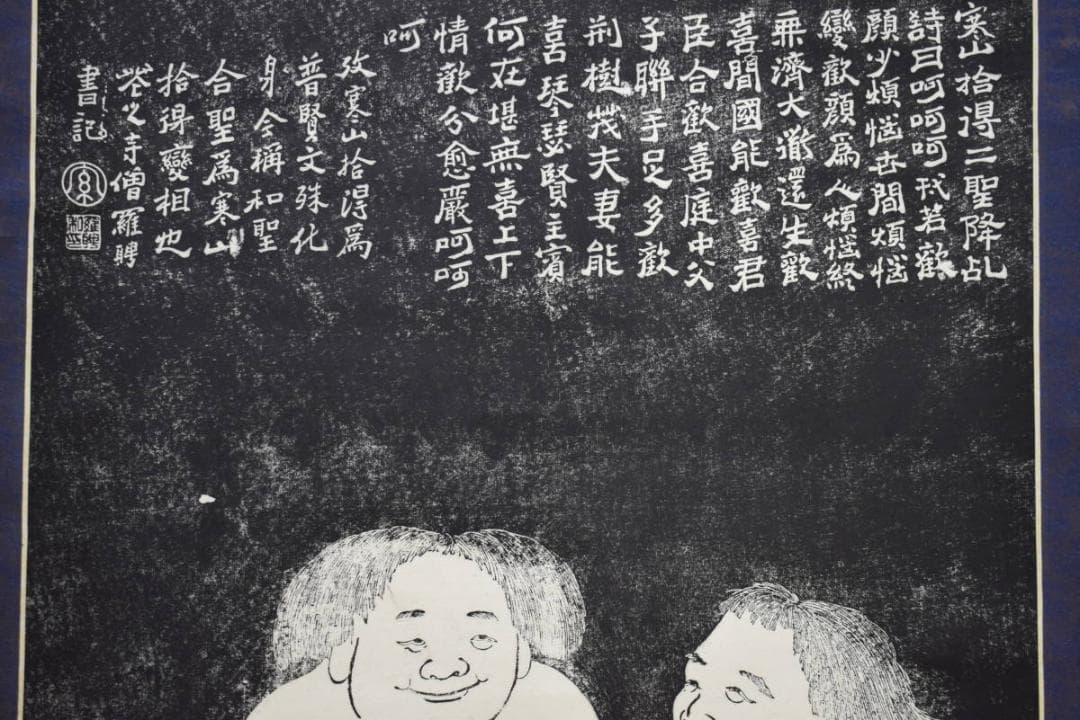 寒山拾得二聖降乩
詩曰呵呵呵我若歡
顏少煩惱世間煩惱
變歡顏為人煩惱終
無濟大道還生歡
喜間國能歡喜君
臣合歡喜庭中父
子聯手足多歡
荆樹茂夫妻能
喜琴瑟賢主賓
何在堪無喜上下
情歡分愈嚴呵呵
呵
攷寒山拾得爲
普賢文殊化
身今稱和聖
合聖爲寒山
拾得變相也
花之寺僧羅聘
書記